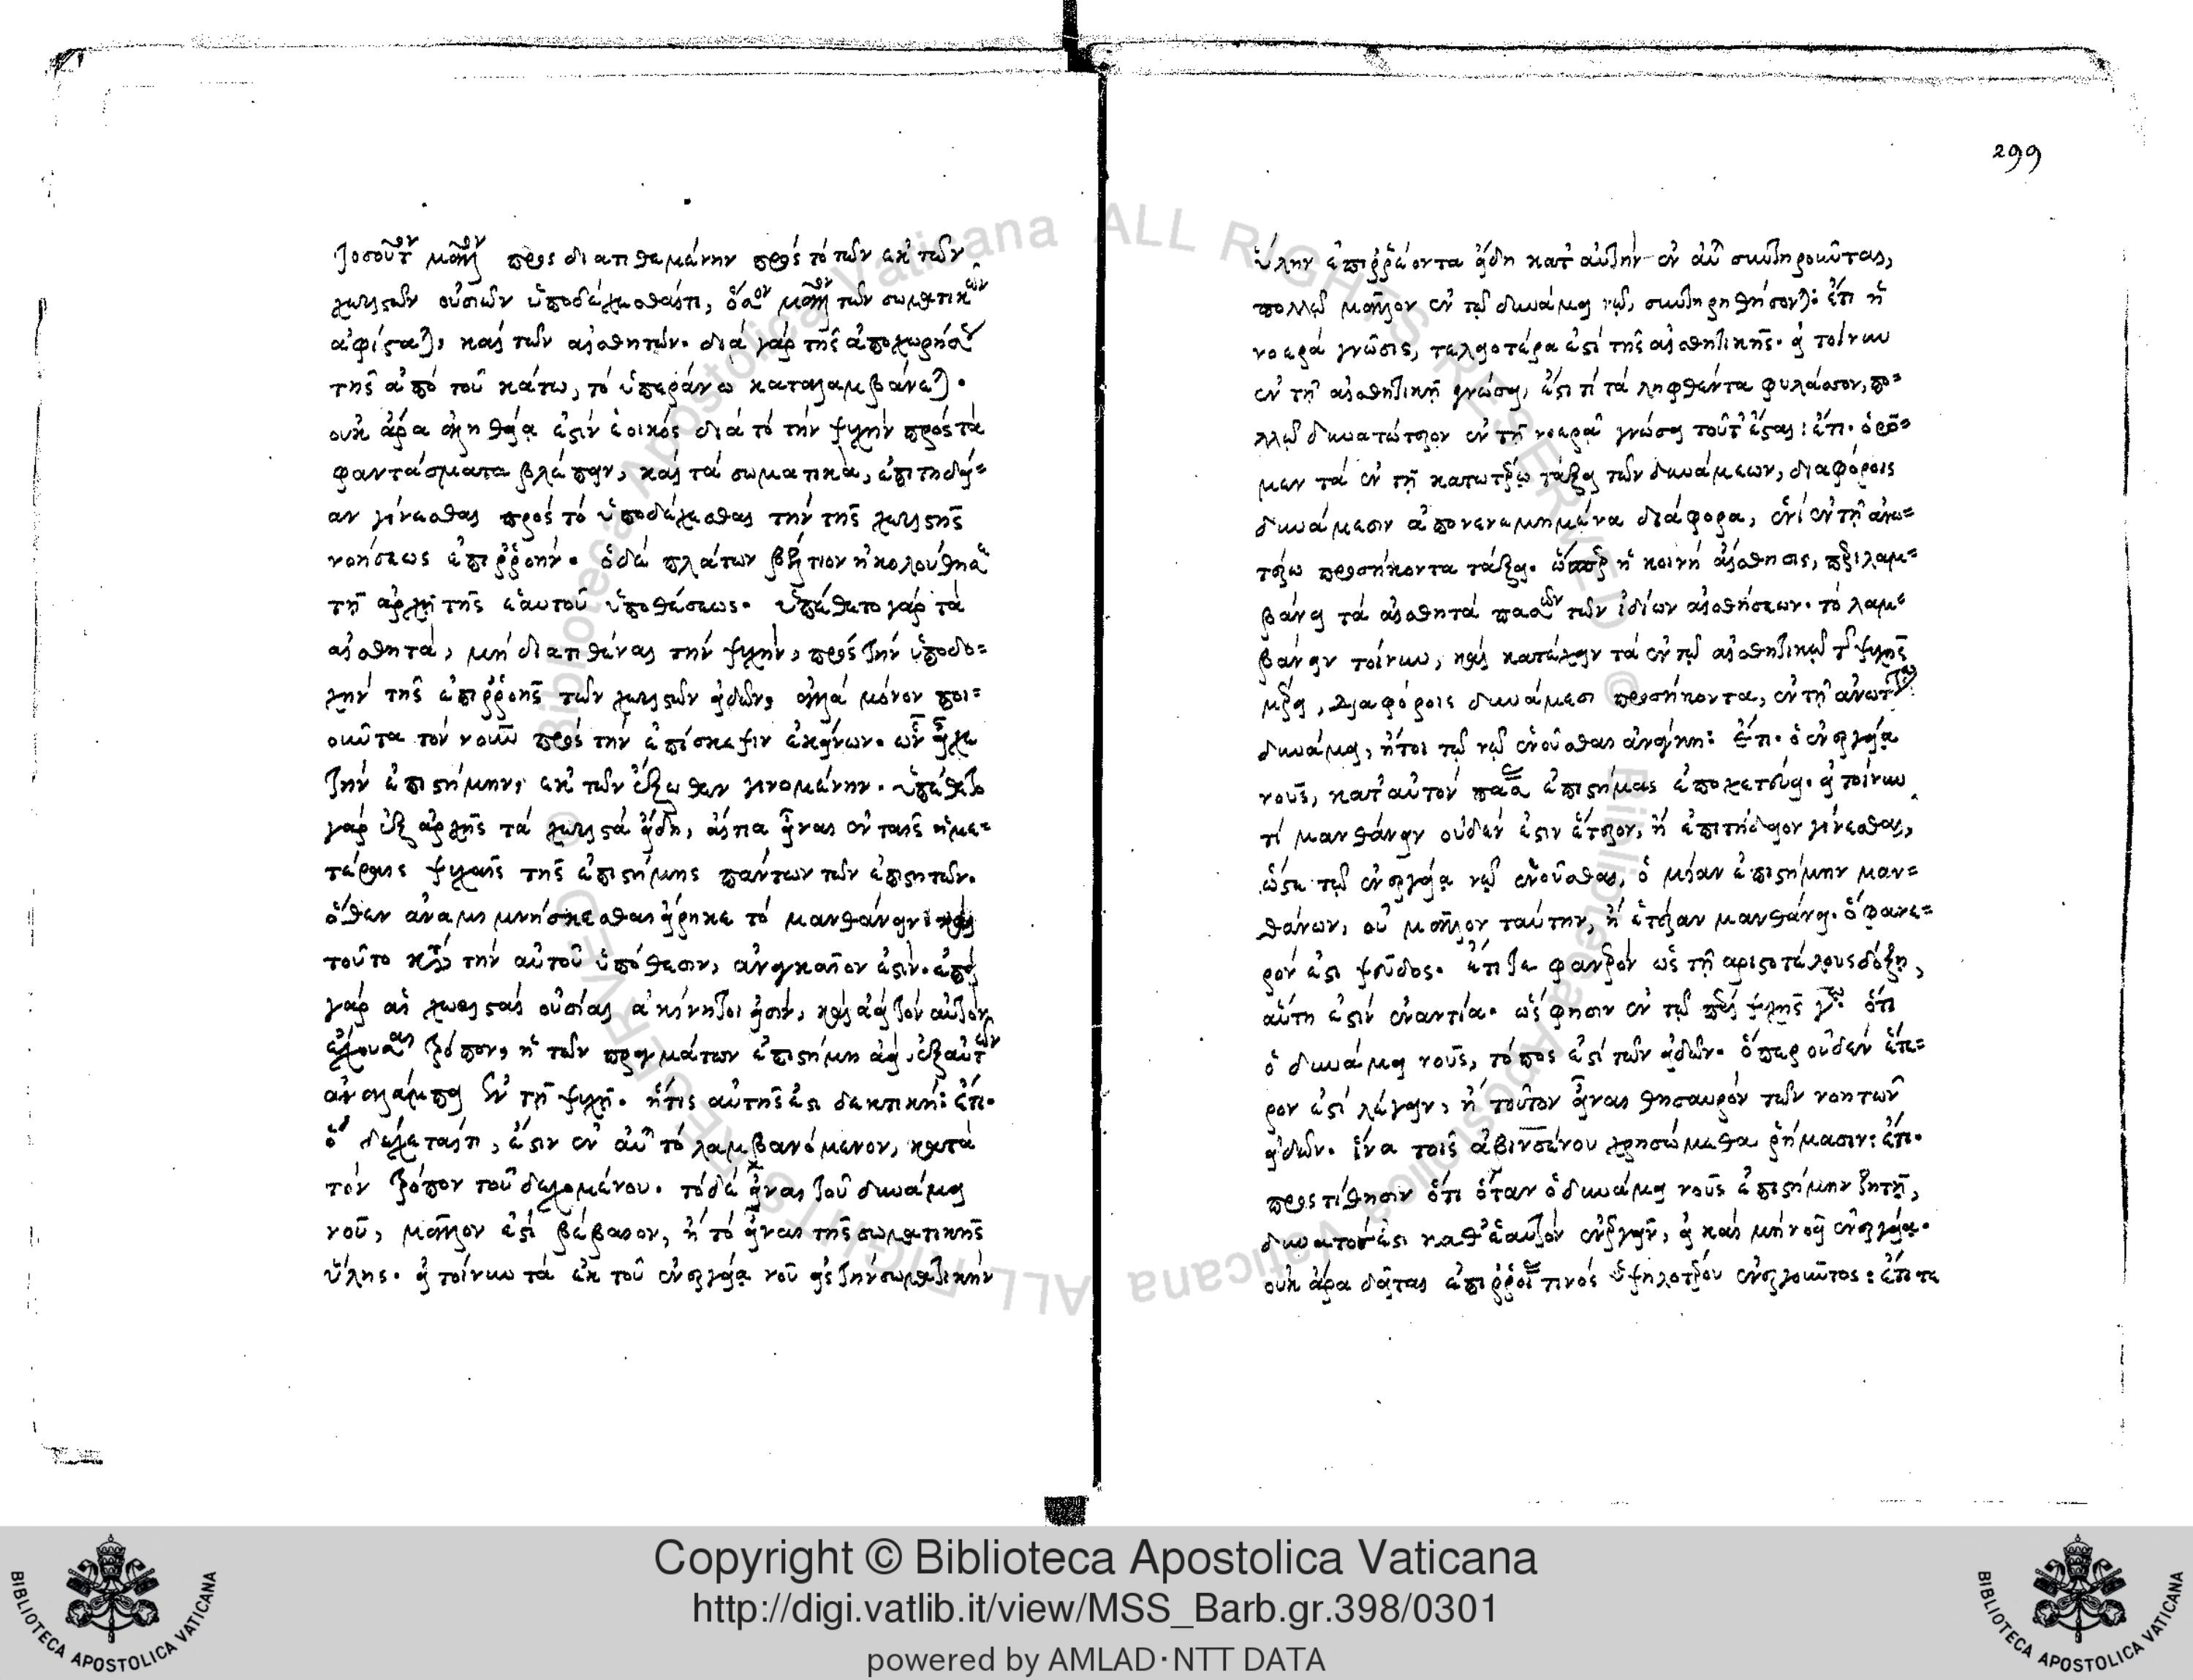 τοσοῦτον μᾶλλον προσδιατιθεμένην πρὸς τό τι τῶν ἐκ τῶν
χωριστῶν οὐσιῶν ὑποδέχεσθαί τι, ὅσον μᾶλλον τῶν σωματικῶν
ἀφίσταται, καὶ τῶν αἰσθητῶν. διὰ γὰρ τῆς ἀποχωρήσεως
τῆς ἀπὸ τοῦ κάτω, τὸ ὑπεράνω καταλαμβάνεται.
οὐκ ἄρα ἀληθείᾳ ἐστὶν ἐοικὸς διὰ τὸ τὴν ψυχὴν πρὸς τὰ
φαντάσματα βλέπειν, καὶ τὰ σωματικά, ἐπιτηδεί-
αν γίνεσθαι πρὸς τὸ ὑποδέχεσθαι τὴν τῆς χωριστῆς
νοήσεως ἐπιρροήν. ὁ δὲ πλάτων βέλτιον ἠκολούθησε
τῇ ἀρχῇ τῆς ἑαυτοῦ ὑποθέσεως. ὑπέθετο γὰρ τὰ
αἰσθητά, μὴ διατιθέναι τὴν ψυχήν, πρὸς τὴν ὑποδο-
χὴν τῆς ἐπιρροῆς τῶν χωριστῶν εἰδῶν, ἀλλὰ μόνον ποι-
οῦντα τὸν νοῦν πρὸς τὴν ἐπίσκεψιν ἐκείνων. ὧν εἶχε
τὴν ἐπιστήμην, ἐκ τῶν ἔξωθεν γινομένην. ὑπέθετο
γὰρ ἐξ ἀρχῆς τὰ χωριστὰ εἴδη, αἴτια εἶναι ἐν ταῖς ἡμε-
τέραις ψυχαῖς τῆς ἐπιστήμης πάντων τῶν ἐπιστητῶν.
ὅθεν ἀναμιμνήσκεσθαι εἴρηκε τὸ μανθάνειν· καὶ
τοῦτο κατὰ τὴν αὐτοῦ ὑπόθεσιν, ἀναγκαῖον ἐστίν. ἐπεὶ
γὰρ αἱ χωρισταὶ οὐσίαι ἀκίνητοι εἰσίν, καὶ ἀεὶ τὸν αὐτὸν
ἔχουσαι τρόπον, ἡ τῶν πραγμάτων ἐπιστήμη ἀεὶ ἐξ αὐτῶν
ἀναλάμπει ἐν τῇ ψυχῇ. ἥτις αὐτῆς ἐστι δεκτική: ἔτι.
ὃ δέχεταί τι, ἔστιν ἐν αὐτῷ τὸ λαμβανόμενον, κατὰ
τὸν τρόπον τοῦ δεχομένου. τὸ δὲ εἶναι τοῦ δυνάμει
νοῦ, μᾶλλον ἐστὶ βέβαιον, ἢ τὸ εἶναι τῆς σωματικῆς
ὕλης. εἰ τοίνυν τὰ ἐκ τοῦ ἐνεργείᾳ νοῦ εἰς τὴν σωματικὴν
299
ὕλην ἐπιρρέοντα εἴδη κατ᾽ αὐτὴν ἐν αὐτῇ συντηροῦνται,
πολλῷ μᾶλλον ἐν τῷ δυνάμει νῷ, συντηρηθήσονται: ἔτι ἡ
νοερὰ γνῶσις, τελειοτέρα ἐστὶ τῆς αἰσθητικῆς. εἰ τοίνυν
ἐν τῇ αἰσθητικῇ γνώσει, ἔστι τι τὰ ληφθέντα φυλάσσον, πο-
λλῷ δυνατώτερον ἐν τῇ νοερᾷ γνώσει τοῦτ᾽ ἔσται: ἔτι. ὁρῶ-
μεν τὰ ἐν τῇ κατωτέρω τάξει τῶν δυνάμεων, διαφόροις
δυνάμεσιν ἀπονενεμημένα διάφορα, ἑνὶ ἐν τῇ ἀνω-
τέρω προσήκοντα τάξει. ὥσπερ ἡ κοινὴ αἴσθησις, περιλαμ-
βάνει τὰ αἰσθητὰ πασῶν τῶν ἰδίων αἰσθήσεων. τὸ λαμ-
βάνειν τοίνυν, καὶ κατέχειν τὰ ἐν τῷ αἰσθητικῷ τῆς ψυχῆς
μέρει, διαφόροις δυνάμεσι προσήκοντα, ἐν τῇ ἀνωτάτῃ
δυνάμει, ἤτοι τῷ νῷ ἑνοῦσθαι ἀνάγκη: ἔτι. ὁ ἐνεργείᾳ
νοῦς, κατ᾽ αὐτὸν πάσας ἐπιστήμας ἐποχετεύει. εἰ τοίνυν
τι μανθάνειν οὐδὲν ἐστιν ἕτερον, ἢ ἐπιτήδειον γίνεσθαι,
ὥστε τῷ ἐνεργείᾳ νῷ ἑνοῦσθαι, ὁ μίαν ἐπιστήμην μαν-
θάνων, οὐ μᾶλλον ταύτην, ἢ ἑτέραν μανθάνει. ὃ φανε-
ρόν ἐστι ψεῦδος. ἔτι τε φανερὸν ὡς τῇ ἀριστοτέλους δόξῃ,
αὕτη ἐστὶν ἐναντία. ὡς φησιν ἐν τῷ περὶ ψυχῆς γῳ. ὅτι
ὁ δυνάμει νοῦς, τόπος ἐστὶ τῶν εἰδῶν. ὅπερ οὐδὲν ἕτε-
ρον ἐστὶ λέγειν, ἢ τοῦτον εἶναι θησαυρὸν τῶν νοητῶν
εἰδῶν. ἵνα τοῖς ἀβινσένου χρησώμεθα ῥήμασιν: ἔτι.
προστίθησιν ὅτι ὅταν ὁ δυνάμει νοῦς ἐπιστήμην ζητῇ,
δυνατός ἐστι καθ᾽ ἑαυτὸν ἐνεργεῖν, εἰ καὶ μὴ νοῇ ἐνεργείᾳ.
οὐκ ἄρα δεῖται ἐπιρροῆς τινὸς ὑψηλοτέρου ἐνεργοῦντος: ἔτι τε
Copyright © Biblioteca Apostolica Vaticana
http://digi.vatlib.it/view/MSS_Barb.gr.398/0301
powered by AMLAD·NTT DATA
BIBLIOTECA APOSTOLICA VATICANA
BIBLIOTECA APOSTOLICA VATICANA